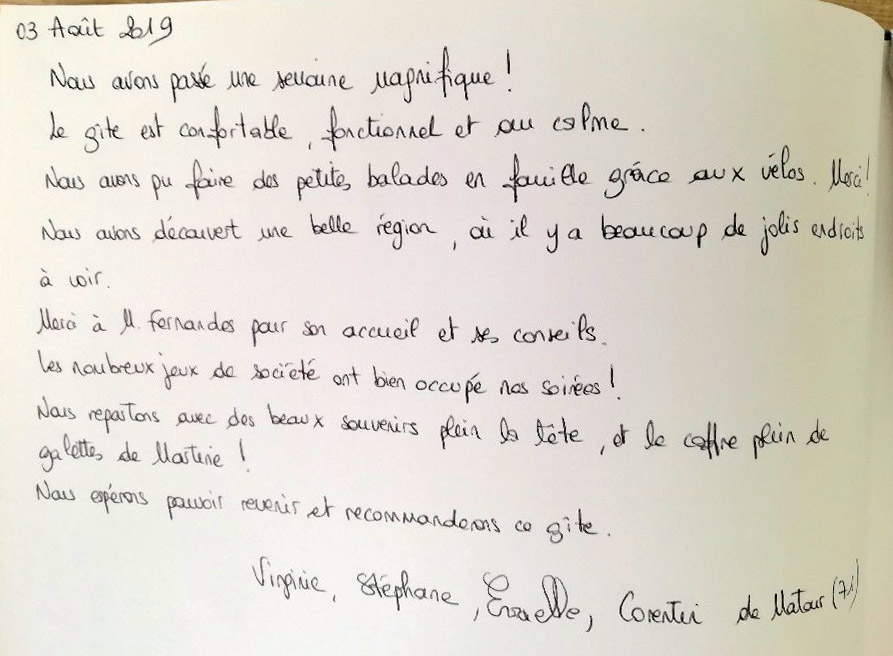 03 Août 2019
Nous avons passé une semaine magnifique !
Le gîte est confortable, fonctionnel et au calme.
Nous avons pu faire des petites balades en famille grâce aux vélos. Merci !
Nous avons découvert une belle région, où il y a beaucoup de jolis endroits
à voir.
Merci à M. Fernandes pour son accueil et ses conseils.
Les nombreux jeux de société ont bien occupé nos soirées !
Nous repartons avec des beaux souvenirs plein la tête, et le coffre plein de
galettes de Martine !
Nous espérons pouvoir revenir et recommanderons ce gîte.
Virginie, Stéphane, Corentin de Matour (71)